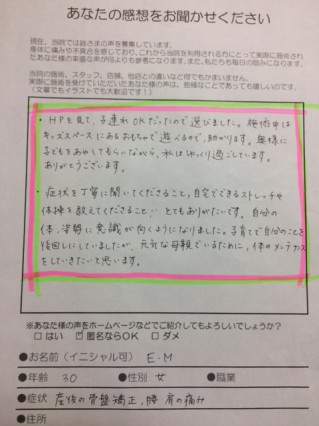 あなたの感想をお聞かせください
現在、当院では皆さまの声を募集しています。
身体に痛みや不具合を感じており、これから当院を利用される方にとって実際に施術され
たあなた様の率直な声が何よりも参考になります。また、私たちも毎日の励みになります。
当院の施術、スタッフ、店舗、他店との違いなど何でもかまいません。
実際に施術を受けていただいたあなた様の声は、些細なことであっても嬉しいのです。
(文章でもイラストでも大歓迎です!)
・HPを見て、子連れOKだったので選びました。施術中は
キッズスペースにあるおもちゃで遊べるので、助かります。奥様に
子どもをあやしてもらいながら、私はゆっくり過ごしています。
ありがとうございます。
・症状を丁寧に聞いてくださること、自宅でできるストレッチや
体操を教えてくださること…とてもありがたいです。自分の
体、姿勢に意識が向くようになりました。子育てで自分のことを
後回しにしていましたが、元気な母親でいるために、体のメンテナンス
をしていきたいと思います。
※あなた様の声をホームページなどでご紹介してもよろしいでしょうか?
□ はい ☑ 匿名ならOK □ ダメ
●お名前(イニシャル可) E・M
●年齢 30 ●性別 女 ●職業
●症状 産後の骨盤矯正、腰 肩の痛み
●住所